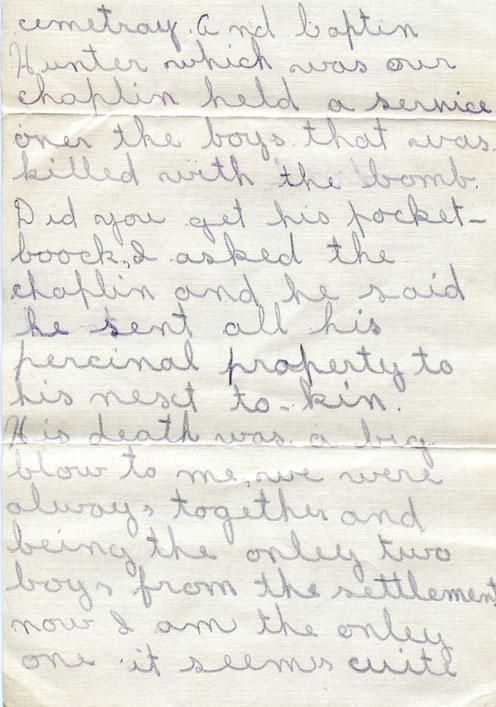 cemetray. And Captin
Hunter which was our
chaplin held a service
over the boys that was
killed with the bomb.
Did you get his pocket-
boock, I asked the
chaplin and he said
he sent all his
percinal property to
his next to-kin.
His death was a big
blow to me, we were
always together and
being the onley two
boys from the settlement
now I am the onley
one it seems cuite